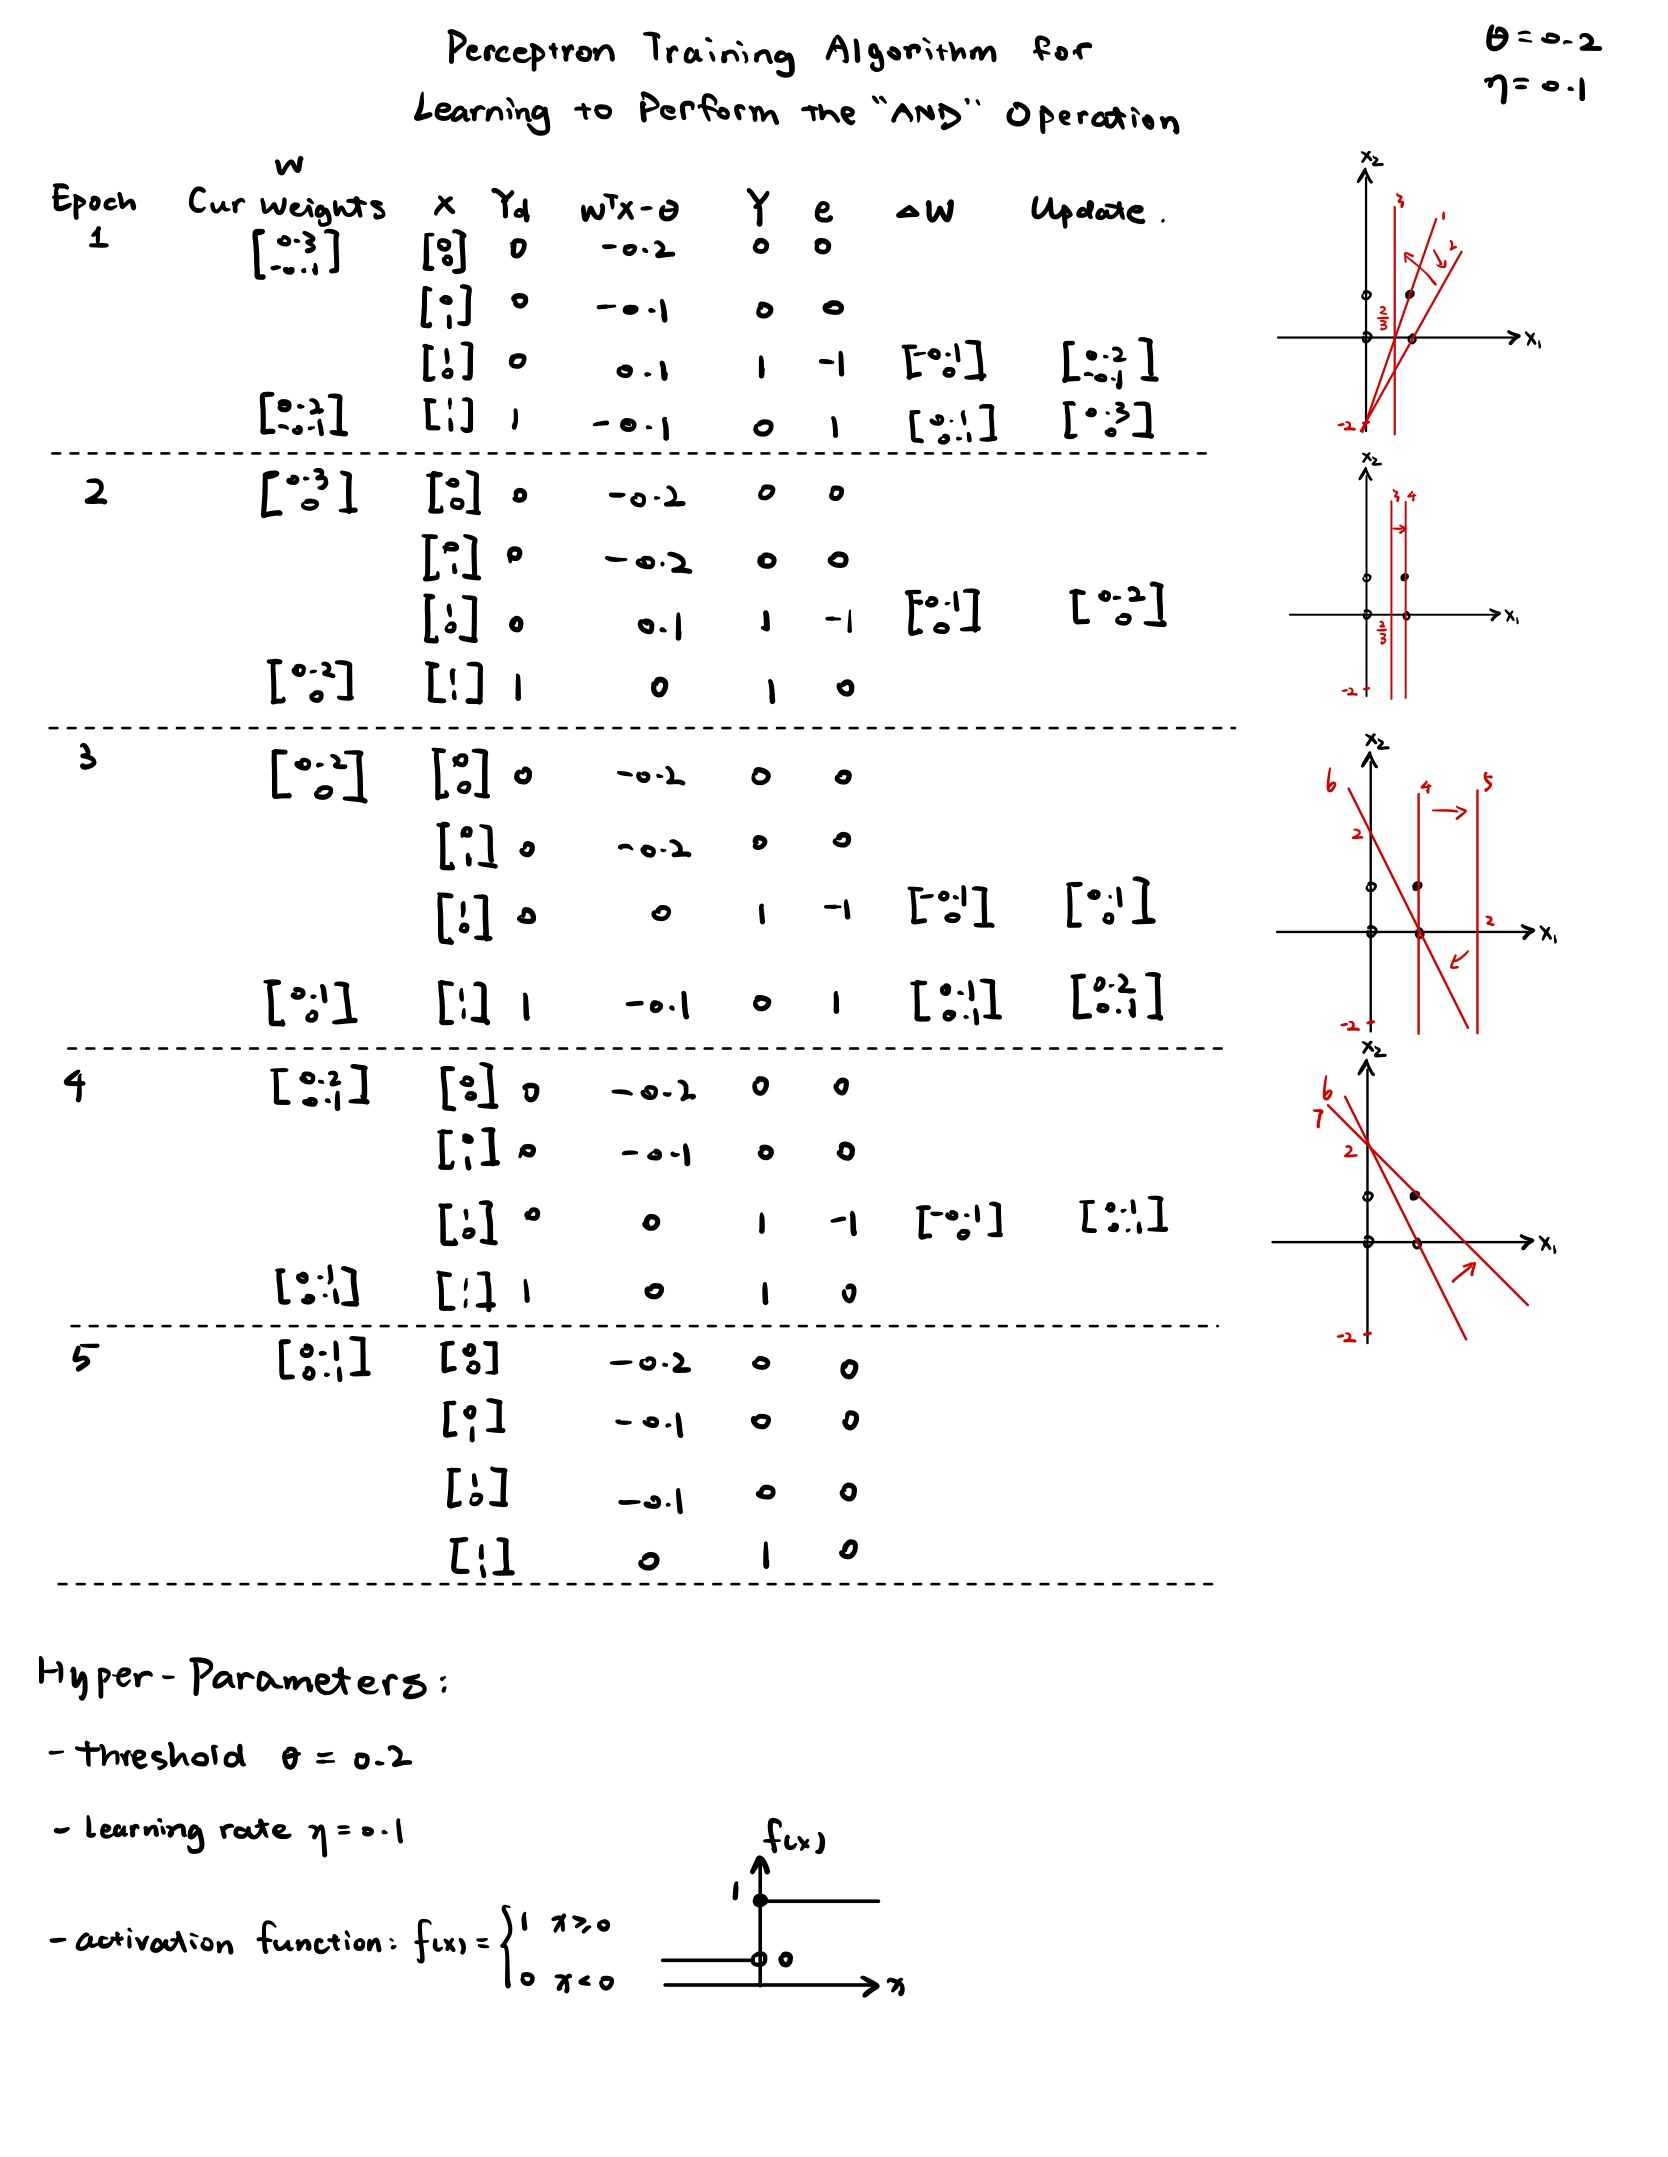 Perceptron Training Algorithm for
Learning to Perform the "AND" Operation
θ = 0.2
η = 0.1
W
Epoch Cur Weights X Yd WᵀX-θ Y e ΔW Update.
1 [0.3 -0.1] [0 0] 0 -0.2 0 0
[0 1] 0 -0.1 0 0
[1 0] 0 0.1 1 -1 [-0.1 0] [0.2 -0.1]
[0.2 -0.1] [1 1] 1 -0.1 0 1 [0.1 0.1] [0.3 0]
2 [0.3 0] [0 0] 0 -0.2 0 0
[0 1] 0 -0.2 0 0
[1 0] 0 0.1 1 -1 [-0.1 0] [0.2 0]
[0.2 0] [1 1] 1 0 1 0
3 [0.2 0] [0 0] 0 -0.2 0 0
[0 1] 0 -0.2 0 0
[1 0] 0 0 1 -1 [-0.1 0] [0.1 0]
[0.1 0] [1 1] 1 -0.1 0 1 [0.1 0.1] [0.2 0.1]
4 [0.2 0.1] [0 0] 0 -0.2 0 0
[0 1] 0 -0.1 0 0
[1 0] 0 0 1 -1 [-0.1 0] [0.1 0.1]
[0.1 0.1] [1 1] 1 0 1 0
5 [0.1 0.1] [0 0] -0.2 0 0
[0 1] -0.1 0 0
[1 0] -0.1 0 0
[1 1] 0 1 0
X₂
3 1 2
2/3
X₁
-2
X₂
3 4
X₁
2/3
-2
X₂
6 4 5
2
2
X₁
-2
X₂
6
7
2
X₁
-2
Hyper-Parameters:
- threshold θ = 0.2
- learning rate η = 0.1
- activation function: f(x) = { 1 x≥0
0 x<0
f(x)
1
0
x